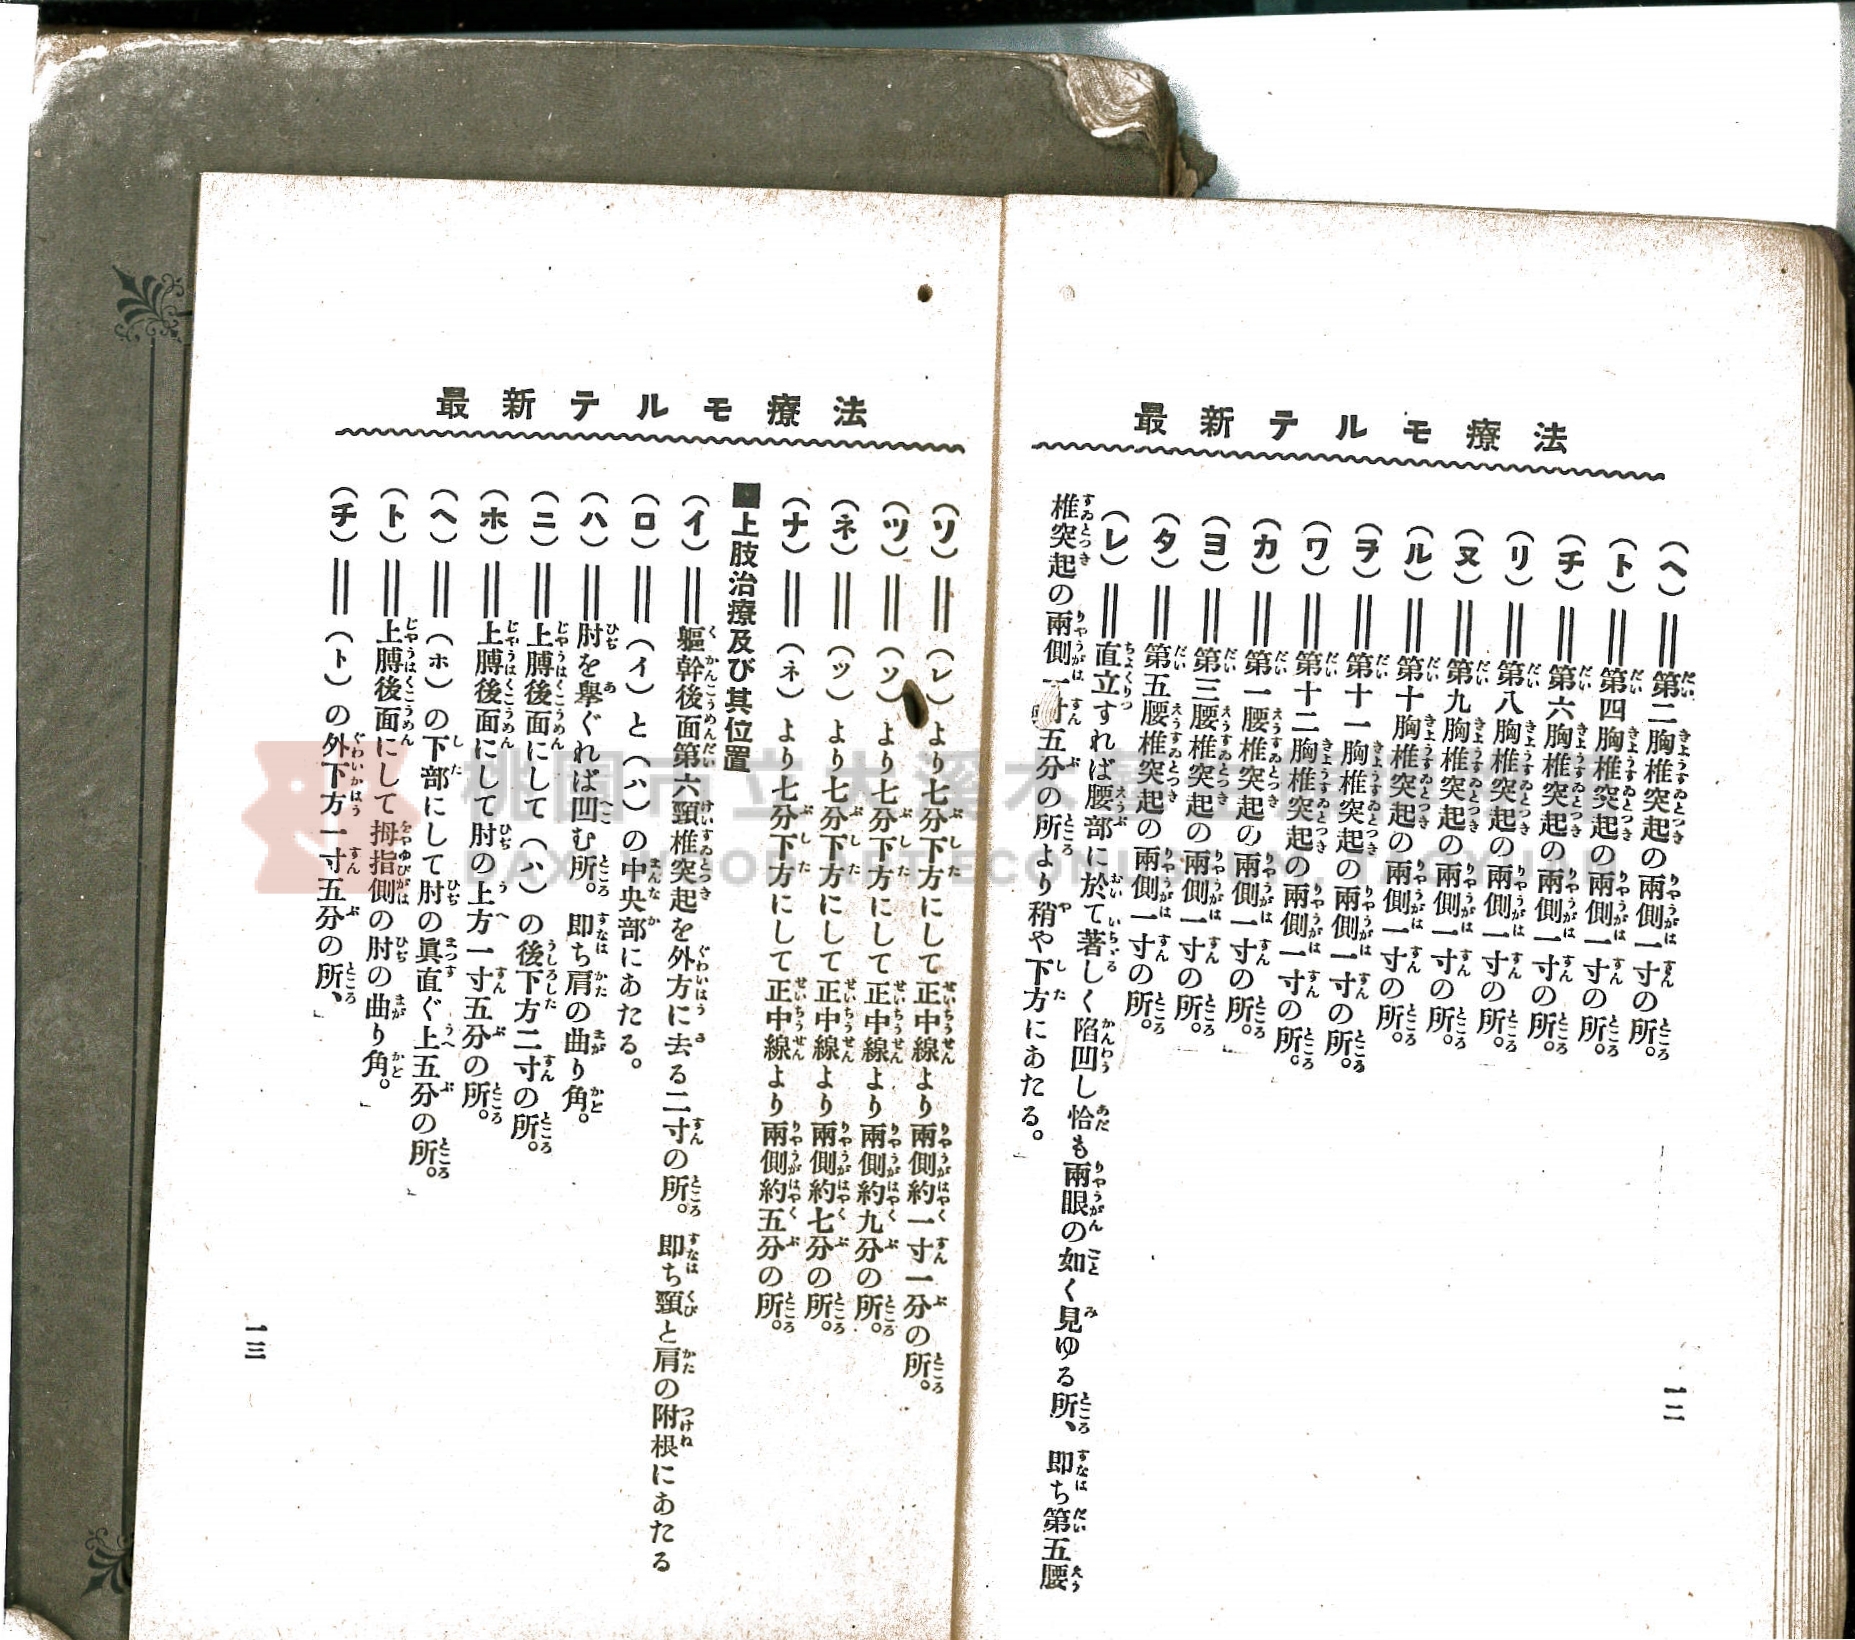 最新テルモ療法
(ヘ)‖第二胸椎突起の兩側一寸の所。
(ト)‖第四胸椎突起の兩側一寸の所。
(チ)‖第六胸椎突起の兩側一寸の所。
(リ)‖第八胸椎突起の兩側一寸の所。
(ヌ)‖第九胸椎突起の兩側一寸の所。
(ル)‖第十胸椎突起の兩側一寸の所。
(ヲ)‖第十一胸椎突起の兩側一寸の所。
(ワ)‖第十二胸椎突起の兩側一寸の所。
(カ)‖第一腰椎突起の兩側一寸の所。
(ヨ)‖第三腰椎突起の兩側一寸の所。
(タ)‖第五腰椎突起の兩側一寸の所。
(レ)‖直立すれば腰部に於て著しく陷凹し恰も兩眼の如く見ゆる所、即ち第五腰
椎突起の兩側一寸五分の所より稍や下方にあたる。
一二
最新テルモ療法
(ソ)‖(レ)より七分下方にして正中線より兩側約一寸一分の所。
(ツ)‖(ソ)より七分下方にして正中線より兩側約九分の所。
(ネ)‖(ツ)より七分下方にして正中線より兩側約七分の所。
(ナ)‖(ネ)より七分下方にして正中線より兩側約五分の所。
■上肢治療及び其位置
(イ)‖軀幹後面第六頸椎突起を外方に去る二寸の所。即ち頸と肩の附根にあたる
(ロ)‖(イ)と(ハ)の中央部にあたる。
(ハ)‖肘を擧ぐれば凹む所。即ち肩の曲り角。
(ニ)‖上膊後面にして(ハ)の後下方二寸の所。
(ホ)‖上膊後面にして肘の上方一寸五分の所。
(ヘ)‖(ホ)の下部にして肘の眞直ぐ上五分の所。
(ト)‖上膊後面にして拇指側の肘の曲り角。
(チ)‖(ト)の外下方一寸五分の所、
一三
桃園市立大溪木藝生態博物館
DAXI WOOD ART ECOMUSEUM, TAOYUAN